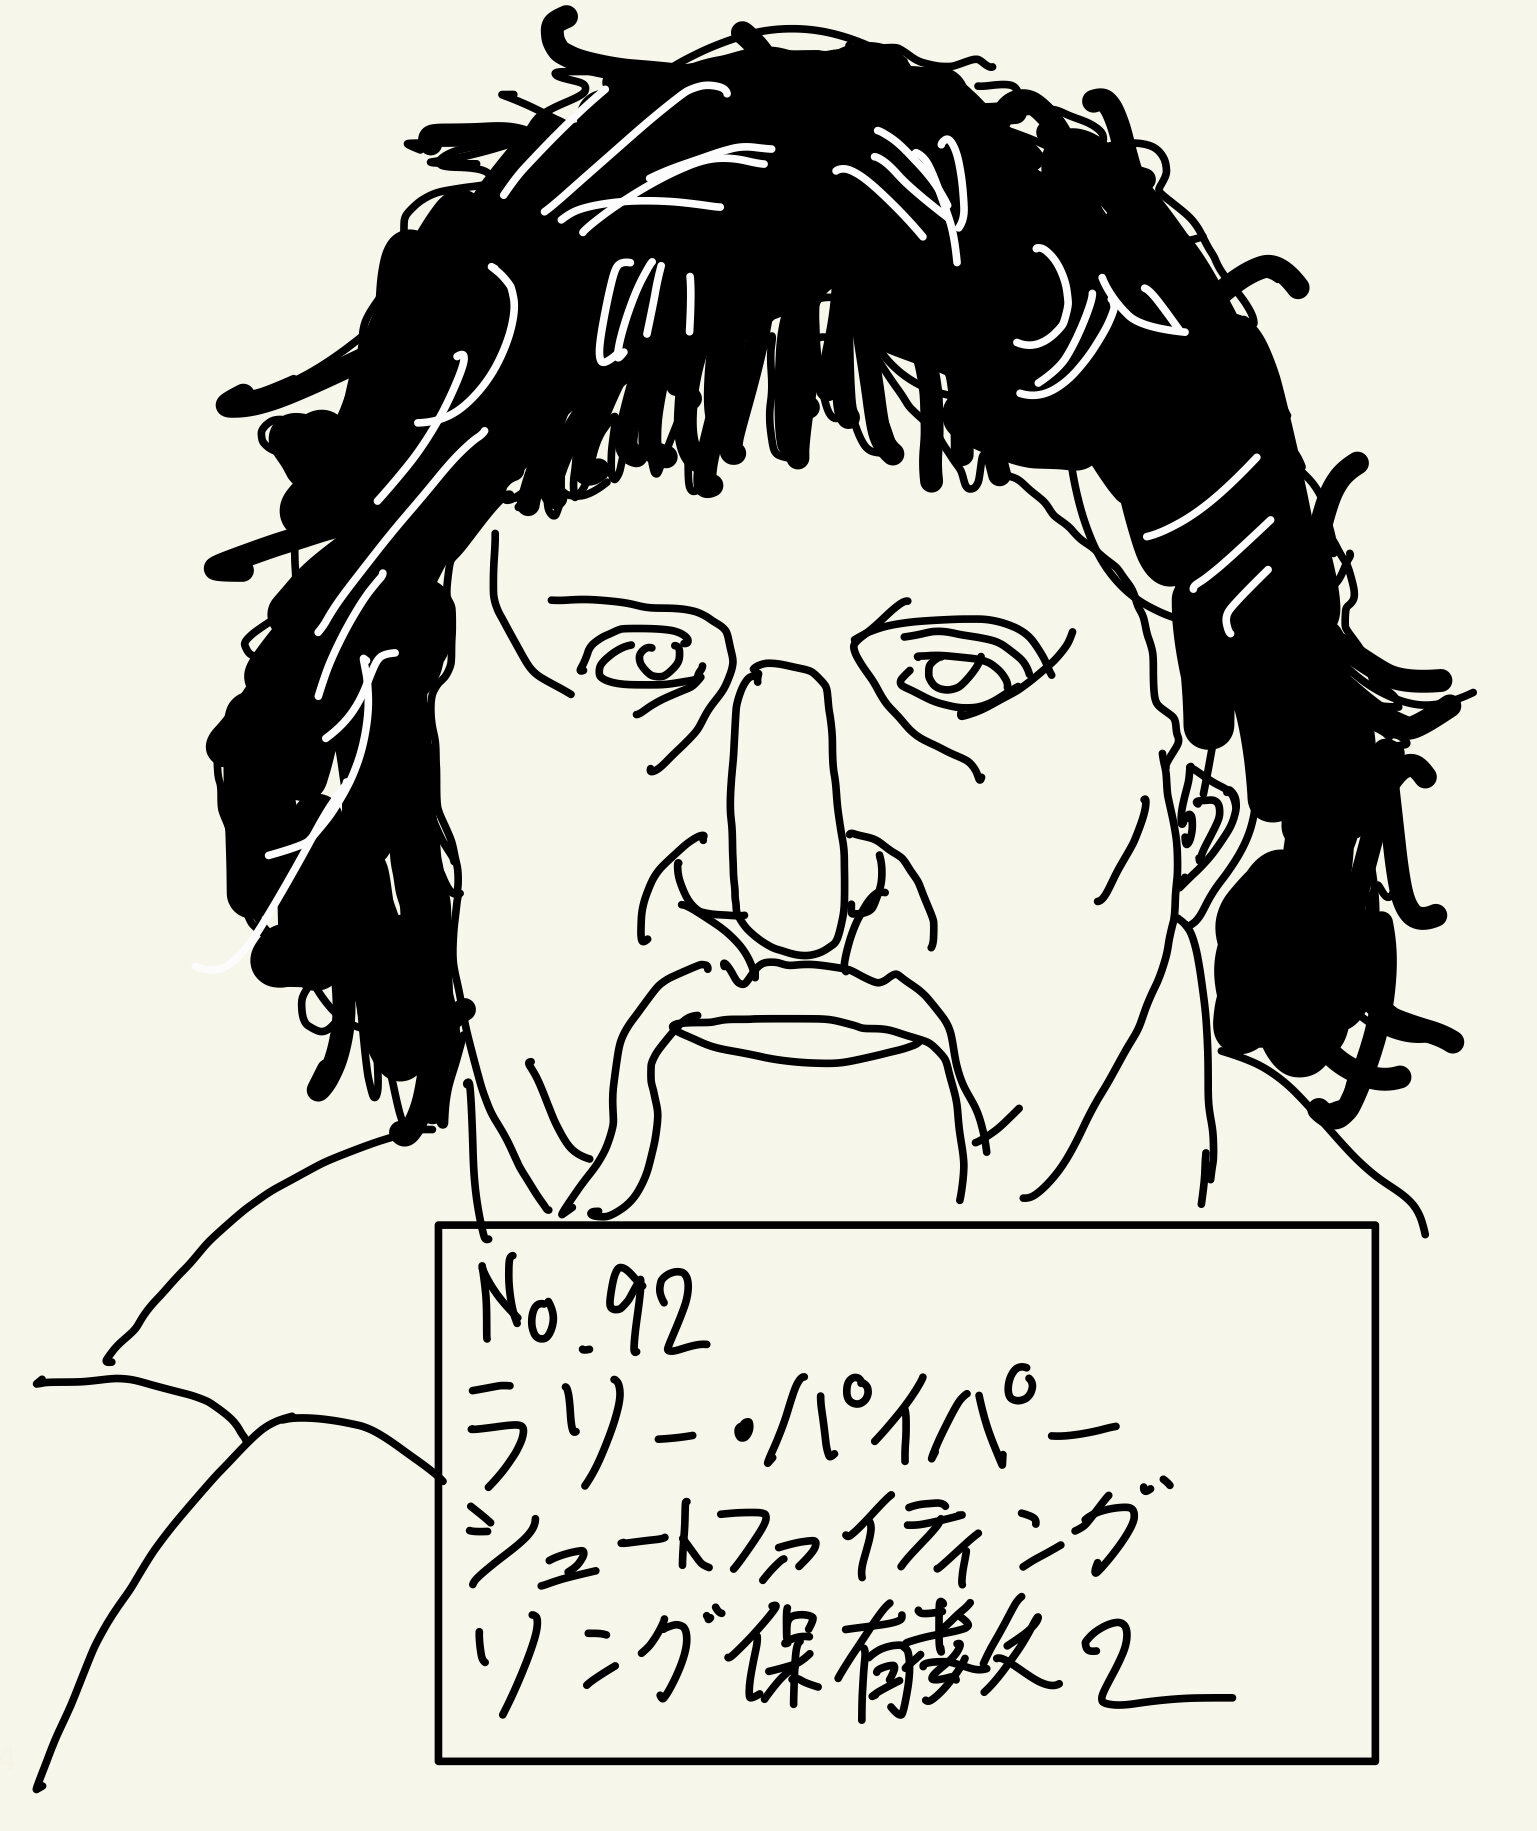 No.92
ラリー・パイパー
シュートファイティング
リング保有数2